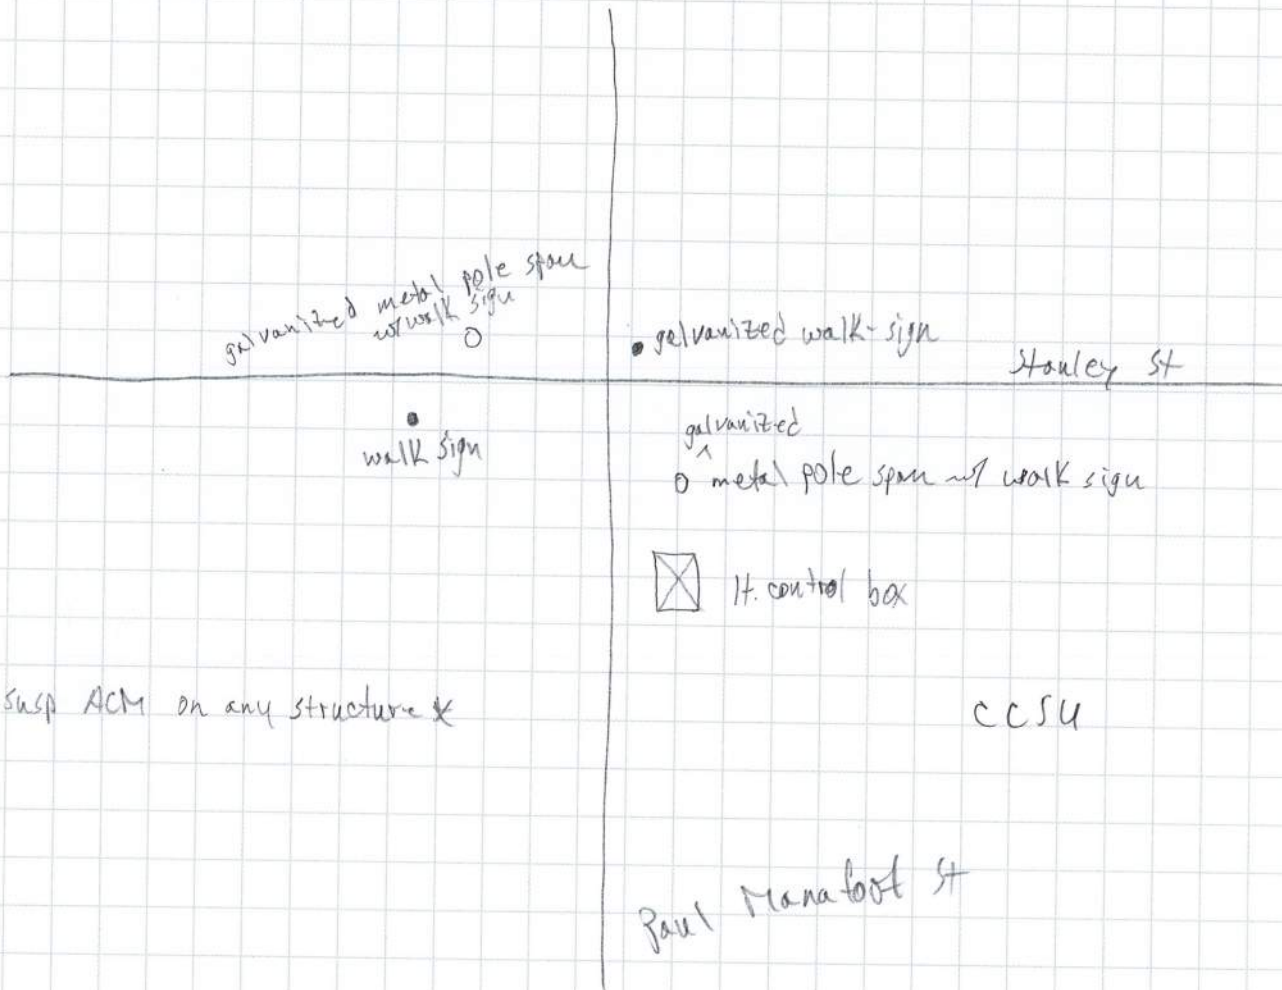 galvanized metal pole span
w/ walk sign
galvanized walk-sign
Stanley St
walk sign
galvanized
^
metal pole span w/ walk sign
lt. control box
susp ACM on any structure *
CCSU
Paul Manafoot St